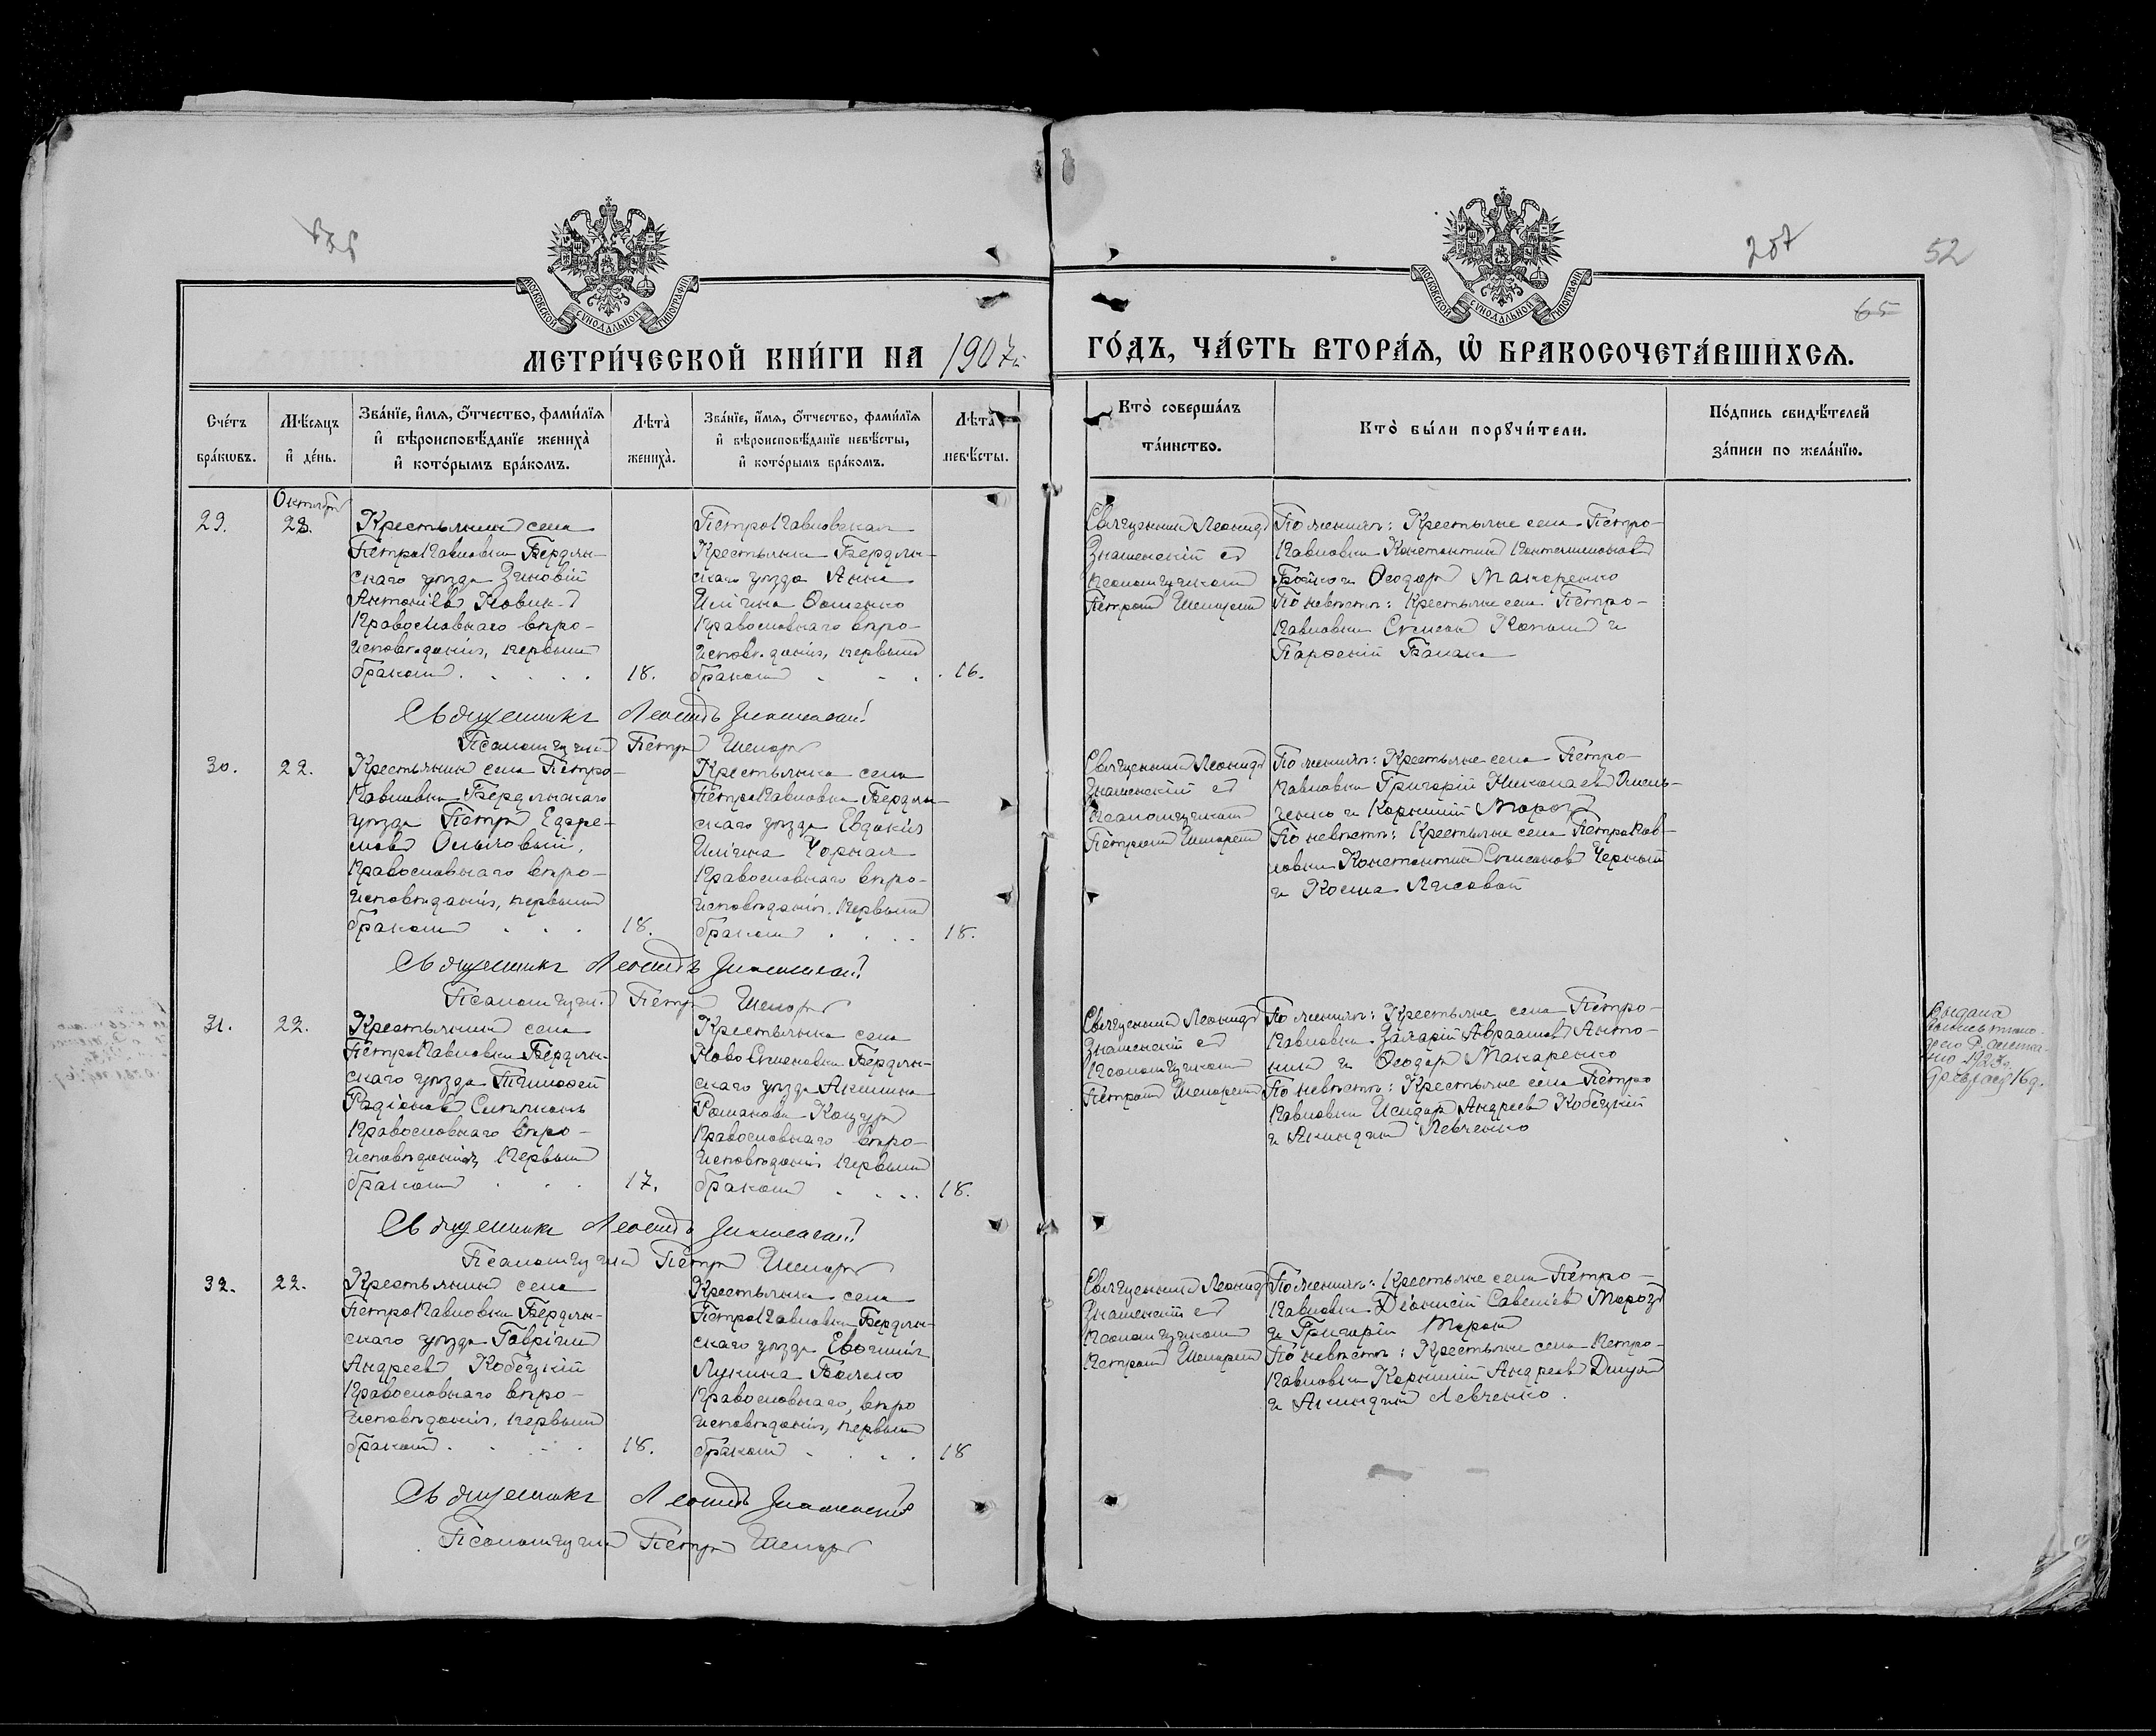 207
52
65
МОСКОВСКОЙ СѴНОДАЛЬНОЙ ТИПОГРАФІИ
МОСКОВСКОЙ СѴНОДАЛЬНОЙ ТИПОГРАФІИ
МЕТРИ́ЧЕСКОЙ КНИ́ГИ НА 1907й
ГО́ДЪ, ЧА́СТЬ ВТОРА́Я, Ѡ҆ БРАКОСОЧЕТА́ВШИХСѦ.
Сче́тъ
бра́кѡвъ.
Мѣ́сяцъ
и҆ де́нь.
Зва́нїе, и҆́мѧ, ѻ҆́тчество, фами́лїѧ
и҆ вѣроисповѣ́данїе жениха̀
и҆ кото́рымъ бра́комъ.
Лѣта̀
жениха̀.
Зва́нїе, и҆́мѧ, ѻ҆́тчество, фами́лїѧ
и҆ вѣроисповѣ́данїе невѣ́сты,
и҆ кото́рымъ бра́комъ.
Лѣта̀
невѣ́сты.
Кто̀ соверша́лъ
та́инство.
Кто̀ бы́ли порꙋчи́тели.
По́дпись свидѣ́телей
за́писи по жела́нїю.
Октября
29.
22.
Крестьянинъ села
ПетроПавловки Бердян-
скаго уѣзда Зиновій
Антоніевъ Новик
Православнаго вѣро-
исповѣданія, первымъ
бракомъ . . . . .
18.
ПетроПавловская
Крестьянка Бердян-
скаго уѣзда Анна
Иліина
Православнаго вѣро-
исповѣданія, первымъ
бракомъ . . .
16.
Священникъ Леонидъ
Знаменскій съ
псаломщикомъ
Петромъ
По женихѣ: Крестьяне села Петро-
Павловки Константинъ
Бойко и Ѳеодоръ Макаренко
По невѣстѣ: Крестьяне села Петро-
Павловки Стефанъ и
Парѳеній
Священникъ Леонидъ Знаменскій
Псаломщикъ Петръ
30.
22.
Крестьянинъ села Петро-
Павловки Бердянскаго
уѣзда Петръ Ефре-
мовъ
Православнаго вѣро-
исповѣданія, первымъ
бракомъ . . .
18.
Крестьянка села
ПетроПавловки Бердян-
скаго уѣзда Евдокія
Иліина Чорная
Православнаго вѣро-
исповѣданія. Первымъ
бракомъ . . . .
18.
Священникъ Леонидъ
Знаменскій съ
псаломщикомъ
Петромъ
По женихѣ: Крестьяне села Петро-
Павловки Григорій Николаевъ Омель-
ченко и Корнилій Морозъ
По невѣстѣ: Крестьяне села ПетроПав-
ловки Константинъ Стефановъ Черный
и Косма Лясовой
Священникъ Леонидъ Знаменскій
Псаломщикъ Петръ
31.
22.
Крестьянинъ села
ПетроПавловки Бердян-
скаго уѣзда Тимоѳей
Радіоновъ
Православнаго вѣро-
исповѣданія, Первымъ
бракомъ . . .
17.
Крестьянка села
Бердян-
скаго уѣзда Акилина
Романова Коцуръ
Православнаго вѣро-
исповѣданія Первымъ
бракомъ . . . .
18.
Священникъ Леонидъ
Знаменскій съ
псаломщикомъ
Петромъ
По женихѣ: Крестьяне села Петро-
Павловки Захарій Авраамовъ Анто-
никъ и Ѳеодоръ Макаренко
По невѣстѣ: Крестьяне села Петро
Павловки Исидоръ Андреевъ Кобецкій
и Акиндинъ Левченко
Выдана
1923 г.
16 д.
Священникъ Леонидъ Знаменскій
Псаломщикъ Петръ
32.
22.
Крестьянинъ села
ПетроПавловки Бердян-
скаго уѣзда Гавріилъ
Андреевъ Кобецкій
Православнаго вѣро-
исповѣданія, первымъ
бракомъ . . . .
18.
Крестьянка села
ПетроПавловки Бердян-
скаго уѣзда Евѳимія
Лукина
Православнаго, вѣро
исповѣданія, первымъ
бракомъ . . . .
18
Священникъ Леонидъ
Знаменскій съ
псаломщикомъ
Петромъ
По женихѣ: Крестьяне села Петро-
Павловки Діонисій Савеліевъ Морозъ
и Григорій
По невѣстѣ: Крестьяне села Петро-
Павловки Корнилій Андреевъ
и Акиндинъ Левченко.
Священникъ Леонидъ Знаменскій
Псаломщикъ Петръ